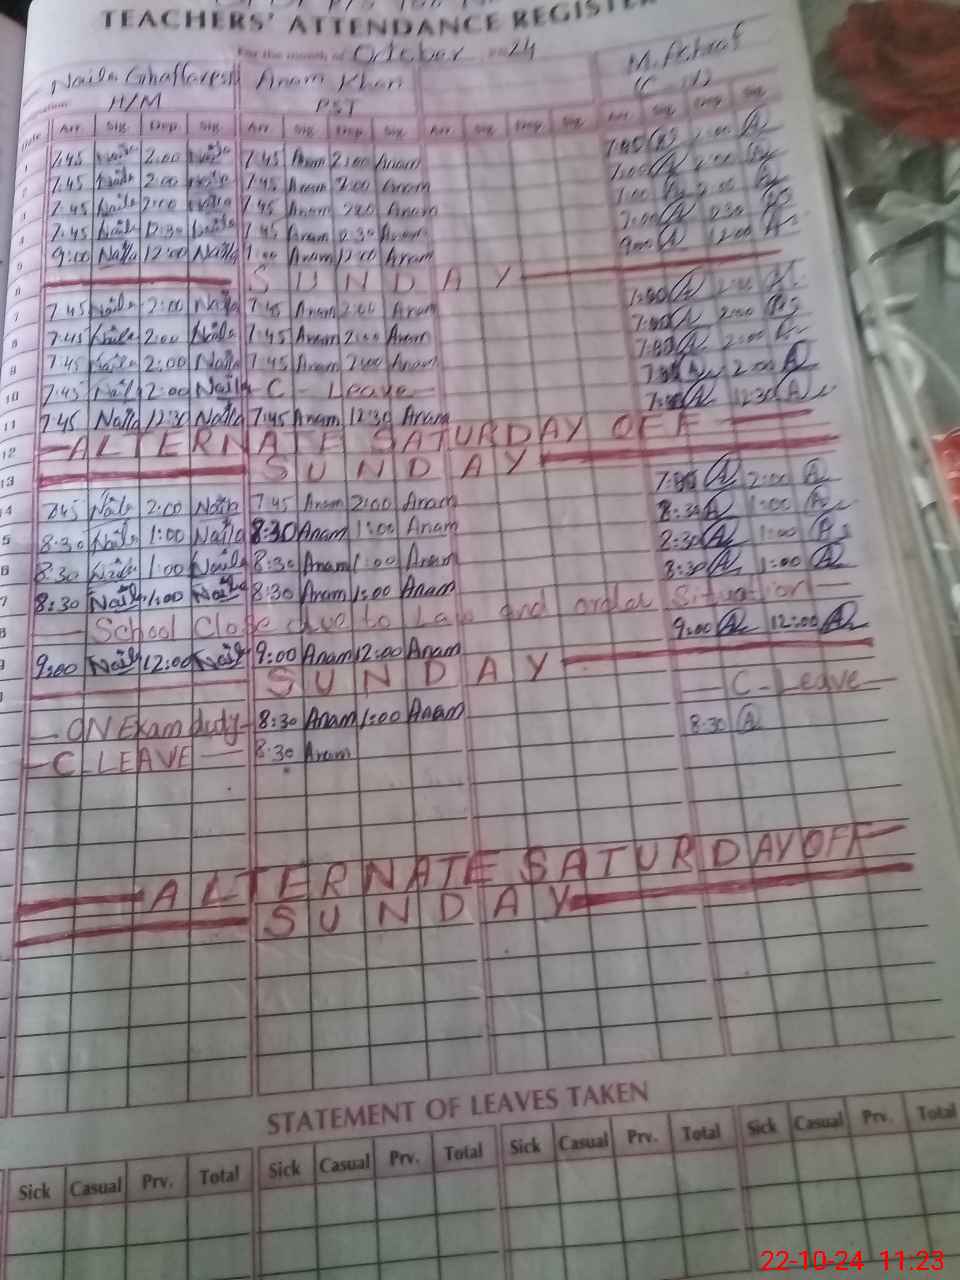 TEACHERS' ATTENDANCE REGISTER
For the month of October 2024
Naila Anam Khan M. Ashraf
H/M PST
Date Arr. Sig. Dep. Sig. Arr. Sig. Dep. Sig. Arr. Sig. Dep. Sig. Arr. Sig. Dep. Sig.
1 7:45 Naila 2:00 Naila 7:45 Anam 2:00 Anam 2:00
2 7:45 Naila 2:00 Naila 7:45 Anam 2:00 Anam 7:00 2:00
3 7:45 Naila 2:00 Naila 7:45 Anam 2:00 Anam 7:00 2:00
4 7:45 Naila 12:30 Naila 7:45 Anam 12:30 Anam 7:00
5 9:00 Naila 12:00 Naila Anam 12:00 Anam 9:00 12:00
6 SUNDAY
7 7:45 Naila 2:00 Naila 7:45 Anam 2:00 Anam 2:00
8 7:45 Naila 2:00 Naila 7:45 Anam 2:00 Anam 7:00 2:00
9 7:45 Naila 2:00 Naila 7:45 Anam 2:00 Anam 2:00
10 7:45 Naila 2:00 Naila C - Leave 2:00
11 7:45 Naila 12:30 Naila 7:45 Anam 12:30 Anam 12:30
12 ALTERNATE SATURDAY OFF
13 SUNDAY
14 7:45 Naila 2:00 Naila 7:45 Anam 2:00 Anam 2:00
15 8:30 Naila 1:00 Naila 8:30 Anam 1:00 Anam 8:30 1:00
16 8:30 Naila 1:00 Naila 8:30 Anam 1:00 Anam 8:30 1:00
17 8:30 Naila 1:00 Naila 8:30 Anam 1:00 Anam 8:30 1:00
School Close due to Law and order Situation
9:00 Naila 12:00 Naila 9:00 Anam 12:00 Anam 9:00 12:00
SUNDAY
ON Exam duty 8:30 Anam 1:00 Anam C - Leave
C LEAVE 8:30 Anam 8:30
ALTERNATE SATURDAY OFF
SUNDAY
STATEMENT OF LEAVES TAKEN
Sick Casual Prv. Total Sick Casual Prv. Total Sick Casual Prv. Total Sick Casual Prv. Total
22-10-24 11:23